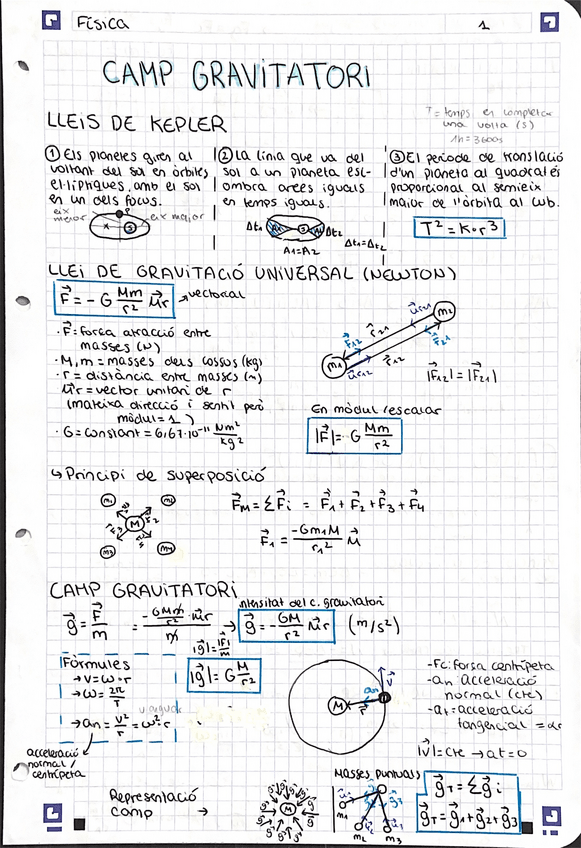 Física 1
CAMP GRAVITATORI
LLEIS DE KEPLER
T = temps en completar
una volta (s)
1h = 3600s
① Els planetes giren al
voltant del sol en òrbites
el·líptiques, amb el sol
en un dels focus.
eix menor
eix major
② La línia que va del
sol a un planeta esc-
ombra àrees iguals
en temps iguals.
Δt1 A1 S A2 Δt2
A1=A2
Δt1=Δt2
③ El període de translació
d'un planeta al quadrat és
proporcional al semieix
major de l'òrbita al cub.
T² = K·r³
LLEI DE GRAVITACIÓ UNIVERSAL (NEWTON)
F = - G Mm/r² ur → vectorial
· F: força atracció entre
masses (N)
· M, m = masses dels cossos (kg)
· r = distància entre masses (m)
ur = vector unitari de r
(mateixa direcció i sentit però
mòdul = 1)
· G = constant = 6,67·10⁻¹¹ Nm²/kg²
m1 m2
F12 r21 ur21
ur12 r12 F21
|F12| = |F21|
En mòdul/escalar
|F| = G Mm/r²
↳ Principi de superposició
m1 m2 M m3 m4
FM = ΣFi = F1 + F2 + F3 + F4
F1 = -Gm1M/r1² M
CAMP GRAVITATORI
intensitat del c. gravitatori
g = F/m = -GMm/r² · ur / m → g = -GM/r² ur (m/s²)
|g| = |F|/m
|g| = G M/r²
Fórmules
→ v = ω·r
→ ω = 2π/T
→ an = v²/r = ω²·r
acceleració
normal /
centrípeta
M r an v
- Fc: força centrípeta
- an: acceleració
normal (cte)
- at = acceleració
tangencial = αr
|v| = cte → at = 0
Representació
camp →
M
Masses puntuals
m1 m2 m3
gT = Σgi
gT = g1 + g2 + g3